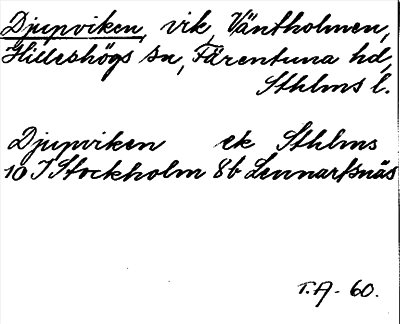 Djupviken, vik, Väntholmen,
Hilleshögs sn, Färentuna hd,
Sthlms l.
Djupviken ek Sthlms
10 I Stockholm 8b Lennartsnäs
T.A - 60.